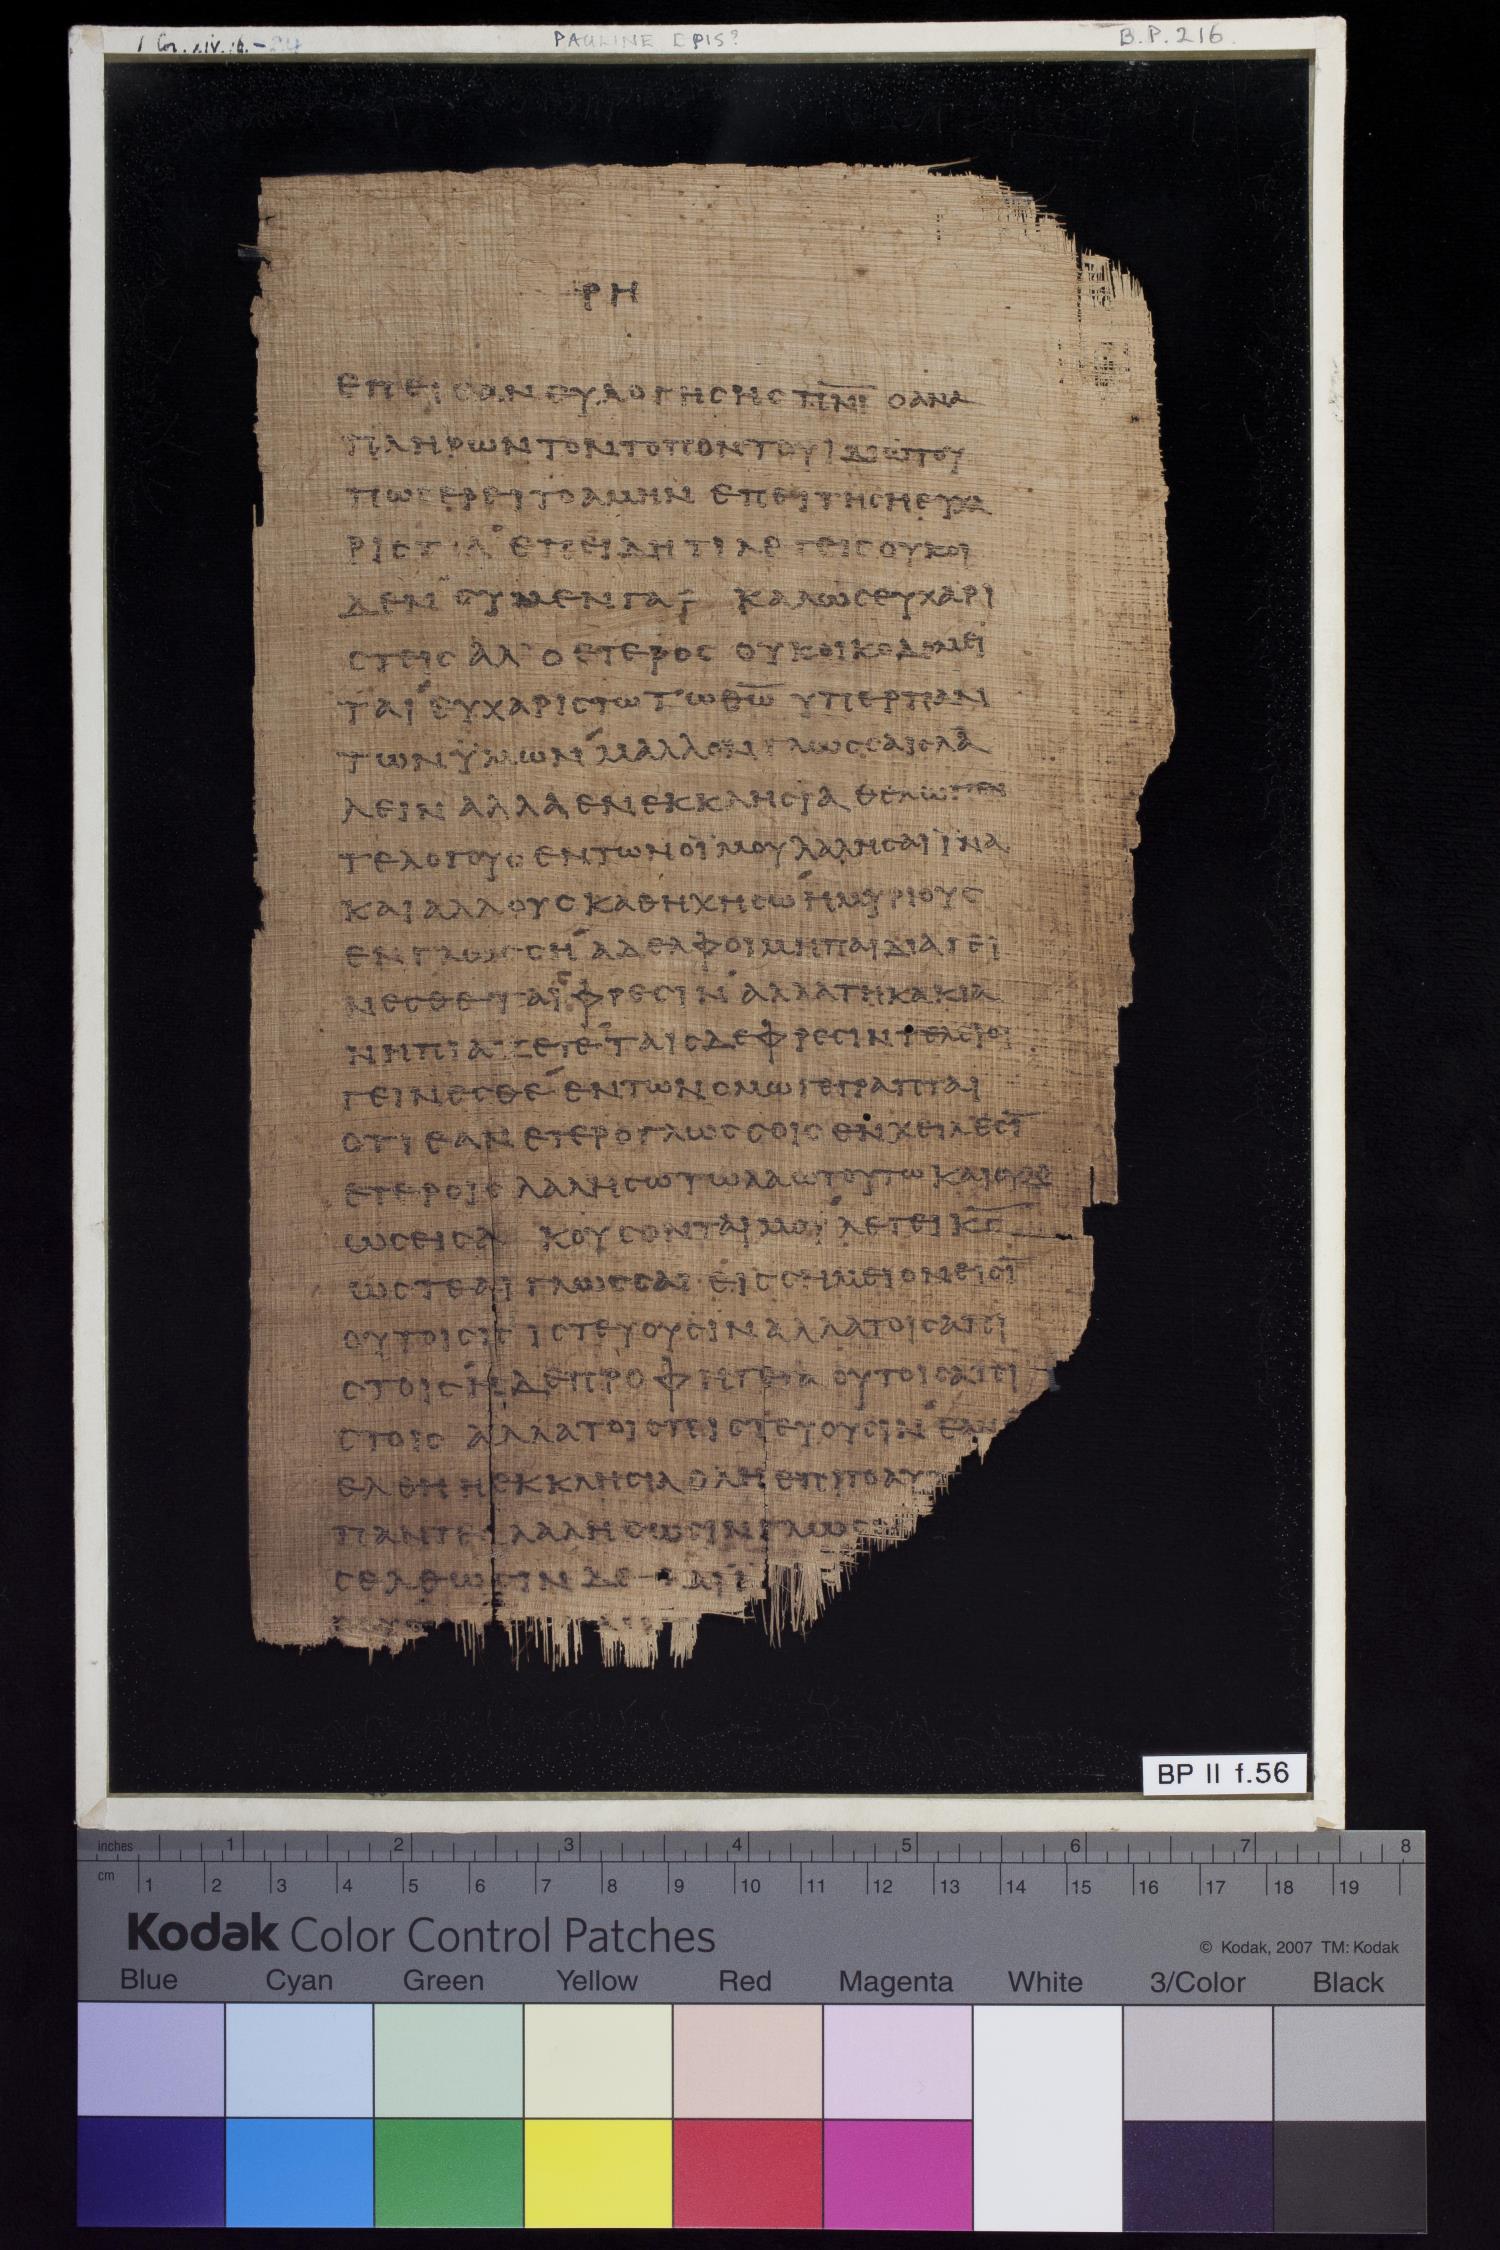 1 Cor. xiv. 16 – 24
PAULINE EPIS?
B.P. 216
ΡΗ
ΕΠΕΙ ΕΑΝ ΕΥΛΟΓΗΣΗΣ ΠΝΙ Ο ΑΝΑ
ΠΛΗΡΩΝ ΤΟΝ ΤΟΠΟΝ ΤΟΥ ΙΔΙΩΤΟΥ
ΠΩΣ ΕΡΕΙ ΤΟ ΑΜΗΝ ΕΠΕΙ ΤΗ ΣΗ ΕΥΧΑ
ΡΙΣΤΙΑ ΕΠΕΙΔΗ ΤΙ ΛΕΓΕΙΣ ΟΥΚ ΟΙ
ΔΕΝ ΣΥ ΜΕΝ ΓΑΡ ΚΑΛΩΣ ΕΥΧΑΡΙ
ΣΤΕΙΣ ΑΛΛ Ο ΕΤΕΡΟΣ ΟΥΚ ΟΙΚΟΔΟΜΕΙ
ΤΑΙ ΕΥΧΑΡΙΣΤΩ ΤΩ ΘΩ ΥΠΕΡ ΠΑΝ
ΤΩΝ ΫΜΩΝ ΜΑΛΛΟΝ ΓΛΩΣΣΑΙΣ ΛΑ
ΛΕΙΝ ΑΛΛΑ ΕΝ ΕΚΚΛΗΣΙΑ ΘΕΛΩ ΠΕΝ
ΤΕ ΛΟΓΟΥΣ ΕΝ ΤΩ ΝΟΪ ΜΟΥ ΛΑΛΗΣΑΙ ΙΝΑ
ΚΑΙ ΑΛΛΟΥΣ ΚΑΘΗΧΗΣΩ Η ΜΥΡΙΟΥΣ
ΕΝ ΓΛΩΣΣΗ ΑΔΕΛΦΟΙ ΜΗ ΠΑΙΔΙΑ ΓΕΙ
ΝΕΣΘΕ ΤΑΙΣ ΦΡΕΣΙΝ ΑΛΛΑ ΤΗ ΚΑΚΙΑ
ΝΗΠΙΑΖΕΤΕ ΤΑΙΣ ΔΕ ΦΡΕΣΙΝ ΤΕΛΕΙΟΙ
ΓΕΙΝΕΣΘΕ ΕΝ ΤΩ ΝΟΜΩ ΓΕΓΡΑΠΤΑΙ
ΟΤΙ ΕΑΝ ΕΤΕΡΟΓΛΩΣΣΟΙΣ ΕΝ ΧΕΙΛΕΣΙ
ΕΤΕΡΟΙΣ ΛΑΛΗΣΩ ΤΩ ΛΑΩ ΤΟΥΤΩ ΚΑΙ ΟΥΔ
ΩΣ ΕΙΣΑΚΟΥΣΟΝΤΑΙ ΜΟΥ ΛΕΓΕΙ ΚΣ
ΩΣΤΕ ΑΙ ΓΛΩΣΣΑΙ ΕΙΣ ΣΗΜΕΙΟΝ ΕΙΣΙ
ΟΥ ΤΟΙΣ ΠΙΣΤΕΥΟΥΣΙΝ ΑΛΛΑ ΤΟΙΣ ΑΠΙ
ΣΤΟΙΣ Η ΔΕ ΠΡΟΦΗΤΕΙΑ ΟΥ ΤΟΙΣ ΑΠΙ
ΣΤΟΙΣ ΑΛΛΑ ΤΟΙΣ ΠΕΙΣΤΕΥΟΥΣΙΝ ΕΑΝ
ΕΛΘΗ Η ΕΚΚΛΗΣΙΑ ΟΛΗ ΕΠΙ ΤΟ ΑΥΤ
ΠΑΝΤΕΣ ΛΑΛΗΣΩΣΙΝ ΓΛΩΣ
ΣΕΛΘΩΣΙΝ ΔΕ
BP II f.56
inches 1 2 3 4 5 6 7 8
cm 1 2 3 4 5 6 7 8 9 10 11 12 13 14 15 16 17 18 19
Kodak Color Control Patches
© Kodak, 2007 TM: Kodak
Blue Cyan Green Yellow Red Magenta White 3/Color Black